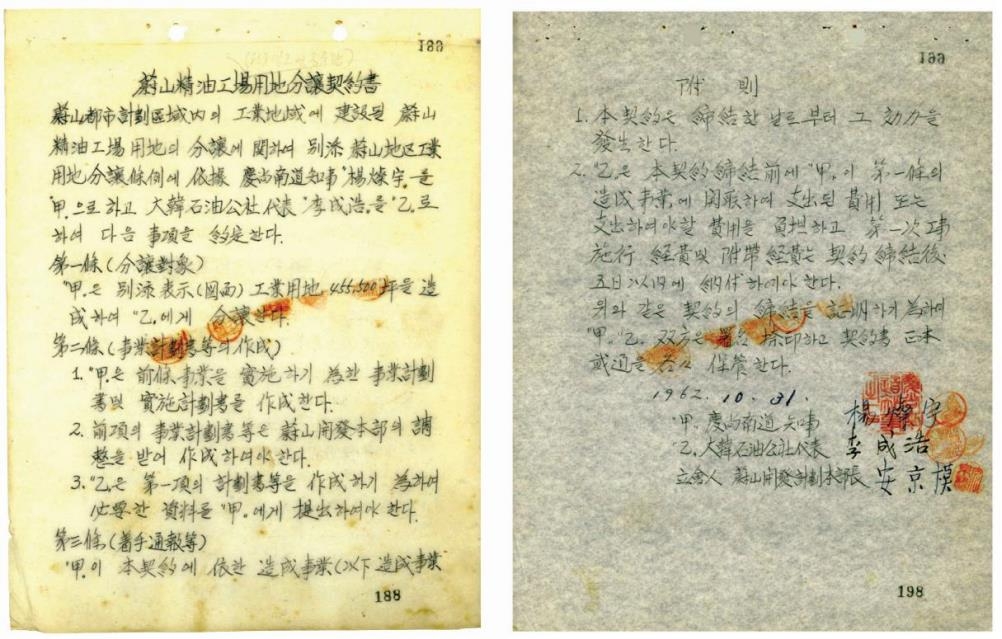 188
蔚山精油工場用地分讓契約書
蔚山都市計劃區域內의 工業地域에 建設될 蔚山
精油工場用地의 分讓에 関하여 別添 蔚山地区工業
用地分讓條例에 依據 慶尙南道知事 "楊燦宇"을
"甲"으로하고 大韓石油公社代表 "李成浩"을 "乙"로
하여 다음 事項을 約定한다.
第一條(分讓對象)
"甲"은 別添表示(図面)工業用地 455,500坪을 造
成하여 "乙"에게 分讓한다.
第二條(事業計劃書等의 作成)
1. "甲"은 前條事業을 實施하기 為한 事業計劃
書및 實施計劃書를 作成한다.
2. 前項의 事業計劃書等은 蔚山開發本部의 調
整을 받어 作成하여야한다.
3. "乙"은 第一項의 計劃書等을 作成하기 為하여
必要한 資料를 "甲"에게 提出하여야 한다.
第三條(着手通報等)
"甲"이 本契約에 依한 造成事業(以下 造成事業
188
附 則
1. 本契約은 締結한 날로부터 그 効力을
發生한다.
2. "乙"은 本契約締結前에 "甲"이 第一條의
造成事業에 関聯하여 支出된 費用 또는
支出하여야할 費用을 負担하고 第一次工事
施行 經費및 附帶經費는 契約締結後
五日以內에 納付하여야한다.
위와 같은 契約의 締結을 証明하기 為하여
"甲" "乙" 双方은 署名 捺印하고 契約書 正本
貳通을 各々 保管한다.
1962. 10. 31.
"甲" 慶尙南道 知事 楊燦宇
"乙" 大韓石油公社代表 李成浩
立會人 蔚山開發計劃本部長 安京模
198